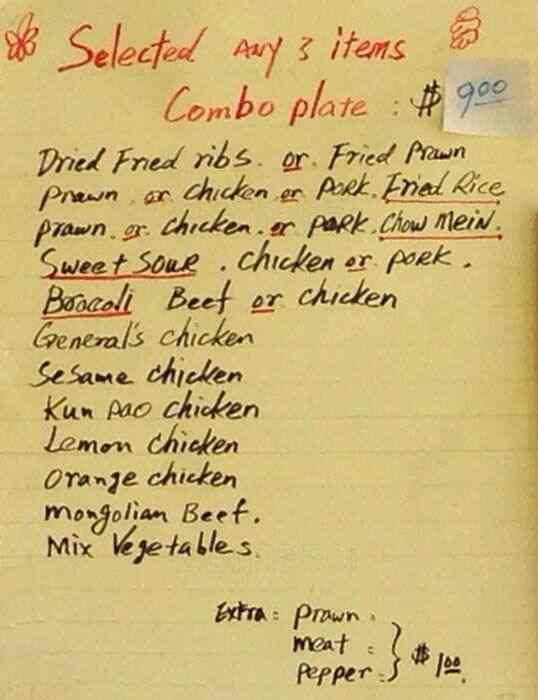 Selected Any 3 items
Combo plate : $ 9.00
Dried Fried ribs. or. Fried Prawn
Prawn. or chicken or Pork. Fried Rice
Prawn. or. chicken. or Pork. Chow Mein.
Sweet Sour. chicken or pork.
Brocoli Beef or chicken
General's chicken
Sesame chicken
Kun Pao chicken
Lemon chicken
Orange chicken
Mongolian Beef.
Mix Vegetables.
Extra: Prawn.
Meat :
Pepper : } $ 1.00.